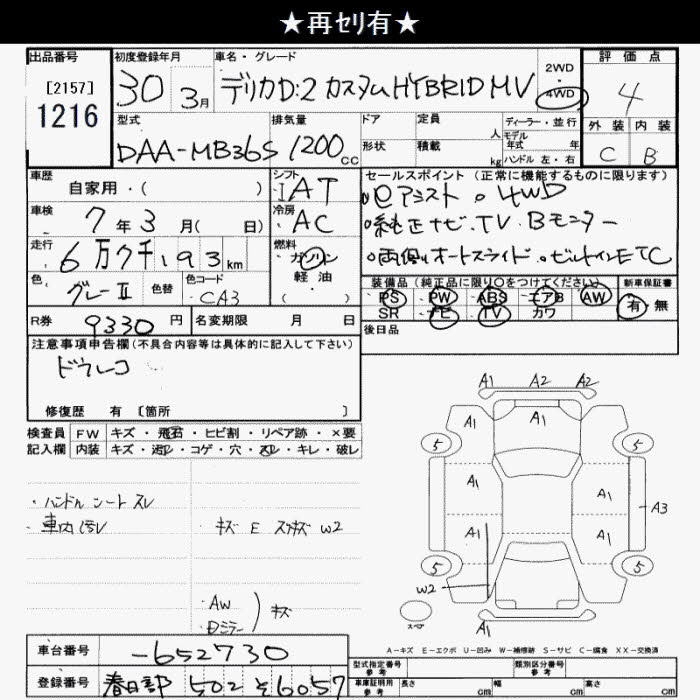 ★再セリ有★
出品番号 初度登録年月 車名・グレード 2WD ・ 4WD 評価点
[2157] 1216 30 3月 デリカD:2 カスタムHYBRID MV 4
型式 排気量 ドア 定員 人 ディーラー・並行 外装 内装
DAA-MB36S 1200cc 形状 積載 kg モデル年式 年 ハンドル 左・右 C B
車歴 自家用・( ) シフト IAT セールスポイント(正常に機能するものに限ります)
車検 7年3月( 日) 冷房 AC
・eアシスト ・4WD
・純正ナビ.TV.Bモニター
・両側オートスライド ・ビルトインETC
走行 6万9千193km 燃料 ガソリン 軽・油 ( )
色 グレーII 色替 色コード CA3
装備品(純正品に限り○をつけてください) 新車保証書
PS PW ABS エアB AW 有・無
SR ナビ TV カワ
R券 9330円 名変期限 月 日 後日品
注意事項申告欄(不具合内容等は具体的に記入して下さい)
ドラレコ
修復歴 有 [箇所 ]
検査員記入欄 FW キズ・飛石・ヒビ割・リペア跡・×要
内装 キズ・汚レ・コゲ・穴・スレ・キレ・破レ
・ハンドル シート スレ
・車内汚レ キズ E スリキズ W2
・AW
・Dミラー ) キズ
A1 A2 A2
A1
5 5
A1 A1
A3
A1 A1
5 5
W2
スペア
A1
A-キズ E-エクボ U-凹み W-補修跡 S-サビ C-腐食 XX-交換済
車台番号 -652730
登録番号 春日部 502 そ 6057
型式指定番号 参考 類別区分番号 参考
車庫証明用 参考 長さ cm 幅 cm 高さ cm